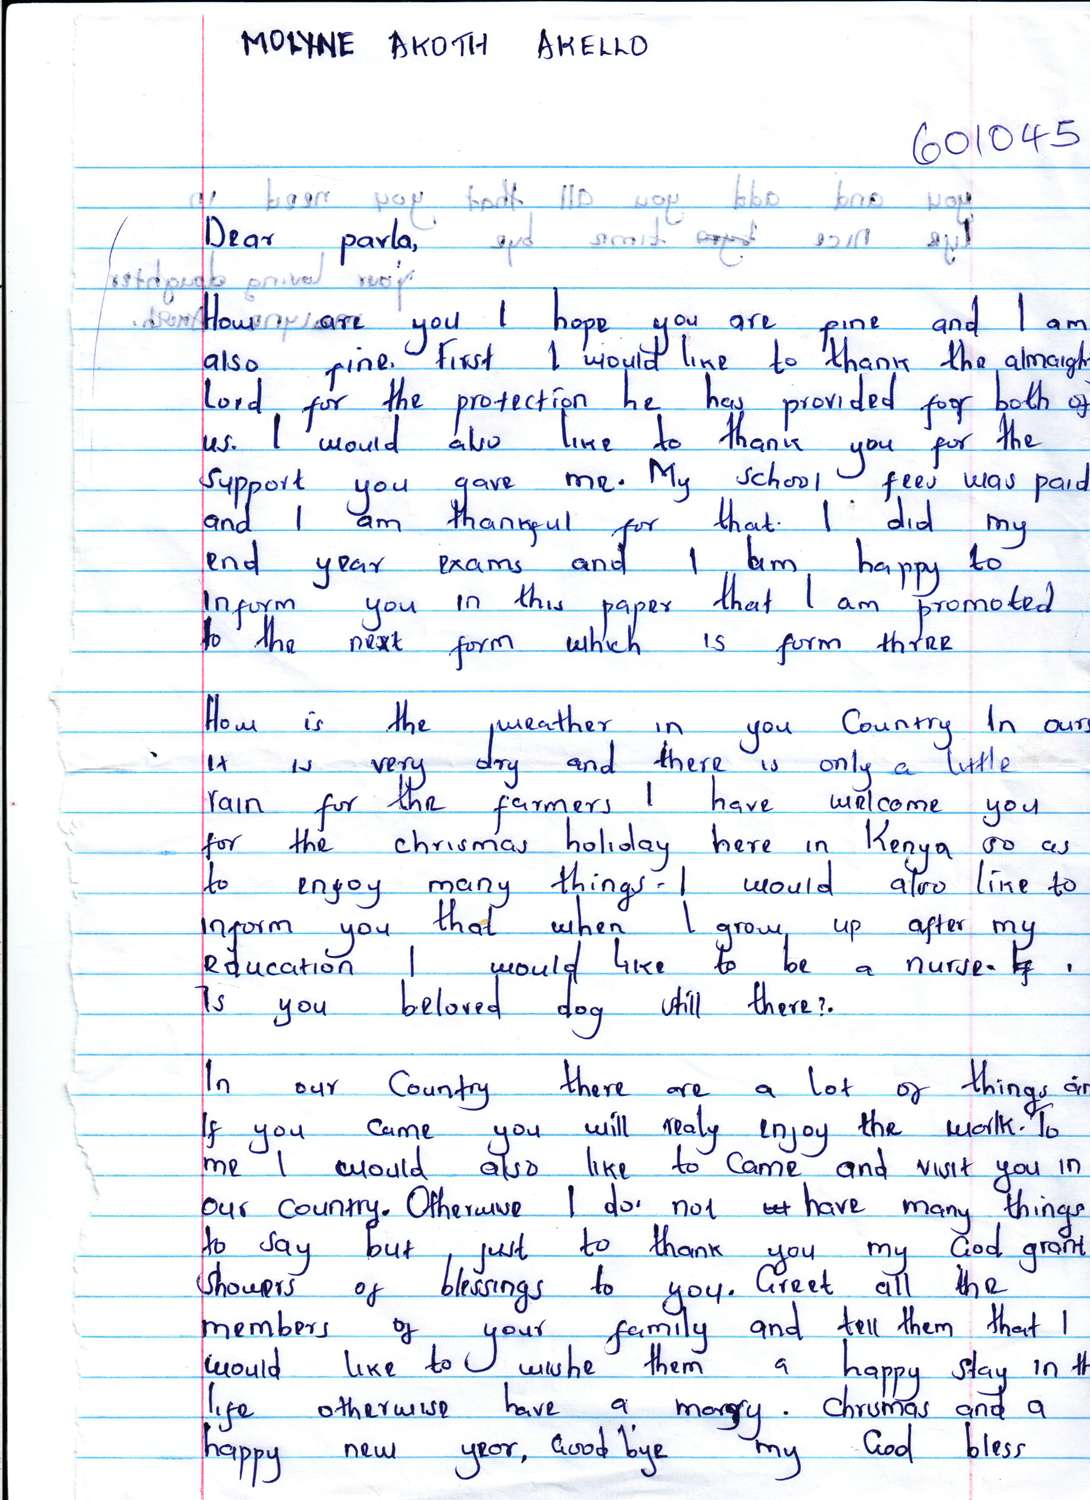 MOLYNE AKOTH AKELLO
601045
you and add you all that you need in
lye nice time bye
Dear parla,
your loving daughter
How are you I hope you are fine and I am
also fine. First I would like to thank the almaigh
Lord for the protection he has provided for both of
us. I would also like to thank you for the
support you gave me. My school fees was paid
and I am thankful for that. I did my
end year exams and I am happy to
inform you in this paper that I am promoted
to the next form which is form three
How is the weather in you Country In ours
it is very dry and there is only a little
rain for the farmers I have welcome you
for the chrismas holiday here in Kenya so as
to enjoy many things. I would also like to
inform you that when I grow up after my
education I would like to be a nurse.
Is you beloved dog still there?.
In our Country there are a lot of things an
If you came you will realy enjoy the work. To
me I would also like to came and visit you in
our country. Otherwise I do not have many things
to say but just to thank you my God grant
showers of blessings to you. Greet all the
members of your family and tell them that I
would like to wishe them a happy stay in th
life otherwise have a marry. chrismas and a
happy new year, Good bye my God bless